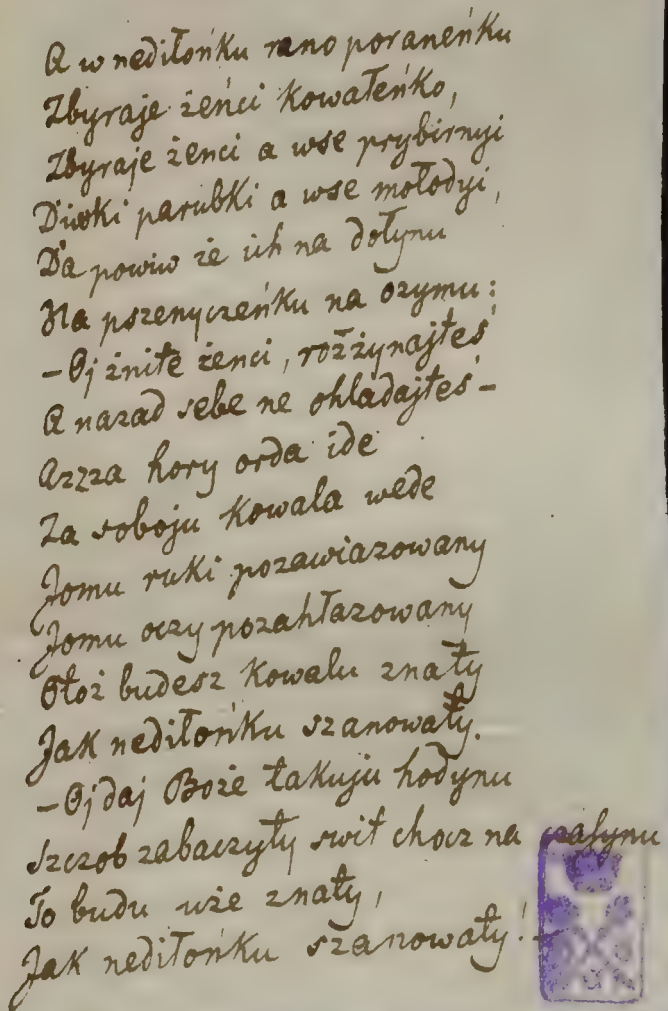 A w nediłońku rano poraneńku
Zbyraje żeńci kowałeńko,
Zbyraje żenci a wse prybirnyi
Diwki parubki a wse mołodyi,
Da powiw że ich na dołynu
Na pszenyczeńku na ozymu:
– Oj żnite żenci, rozżynajteś
A nazad sebe ne ohladajteś –
Azzza hory orda ide
Za soboju kowala wede
Jomu ruki pozawiazowany
Jomu oczy pozahłazowany
Otoż budesz kowalu znaty
Jak nediłońku szanowaty.
– Oj daj Boże takuju hodynu
Szczob zabaczyty swit chocz na czasynu
To budu uże znaty,
Jak nediłońku szanowaty!